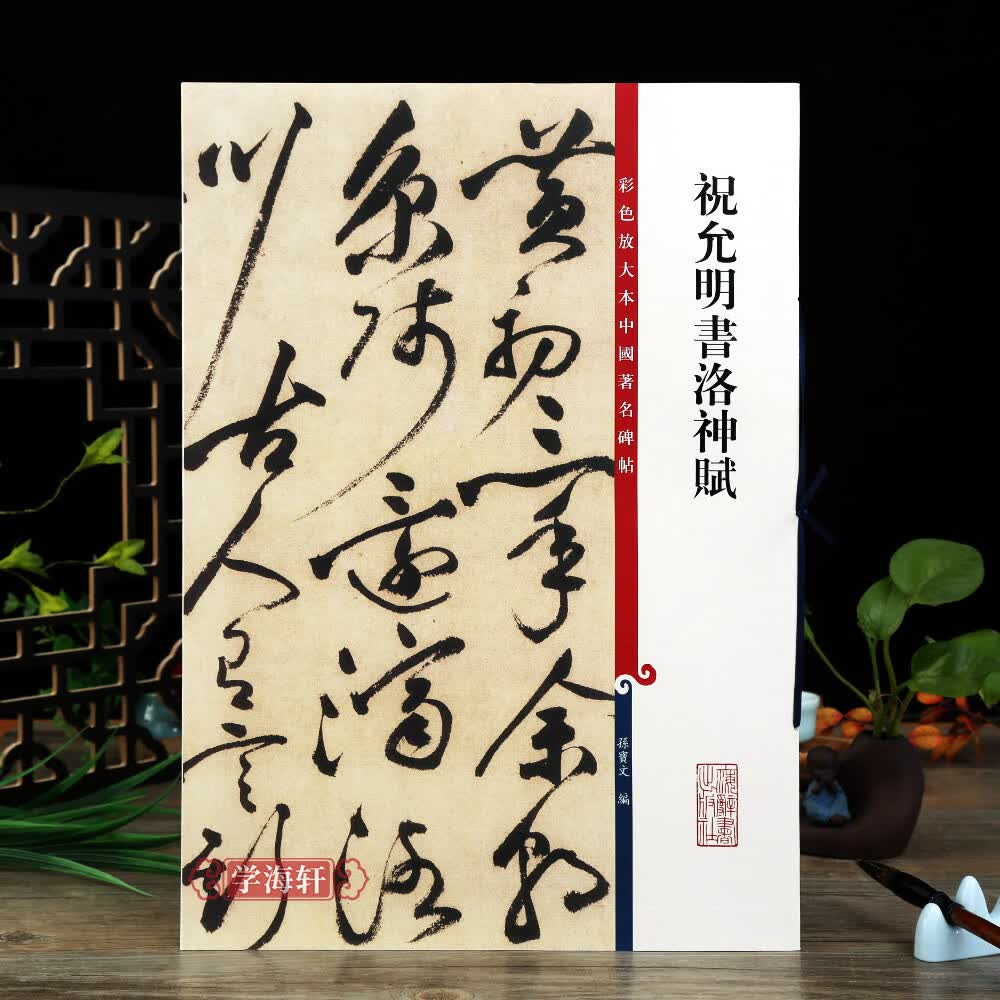 祝允明書洛神賦
上海辭書
出版社
彩色放大本中國著名碑帖
孫寶文 編
黃初三年余朝
京師還濟洛
川古人有言斯
学海轩